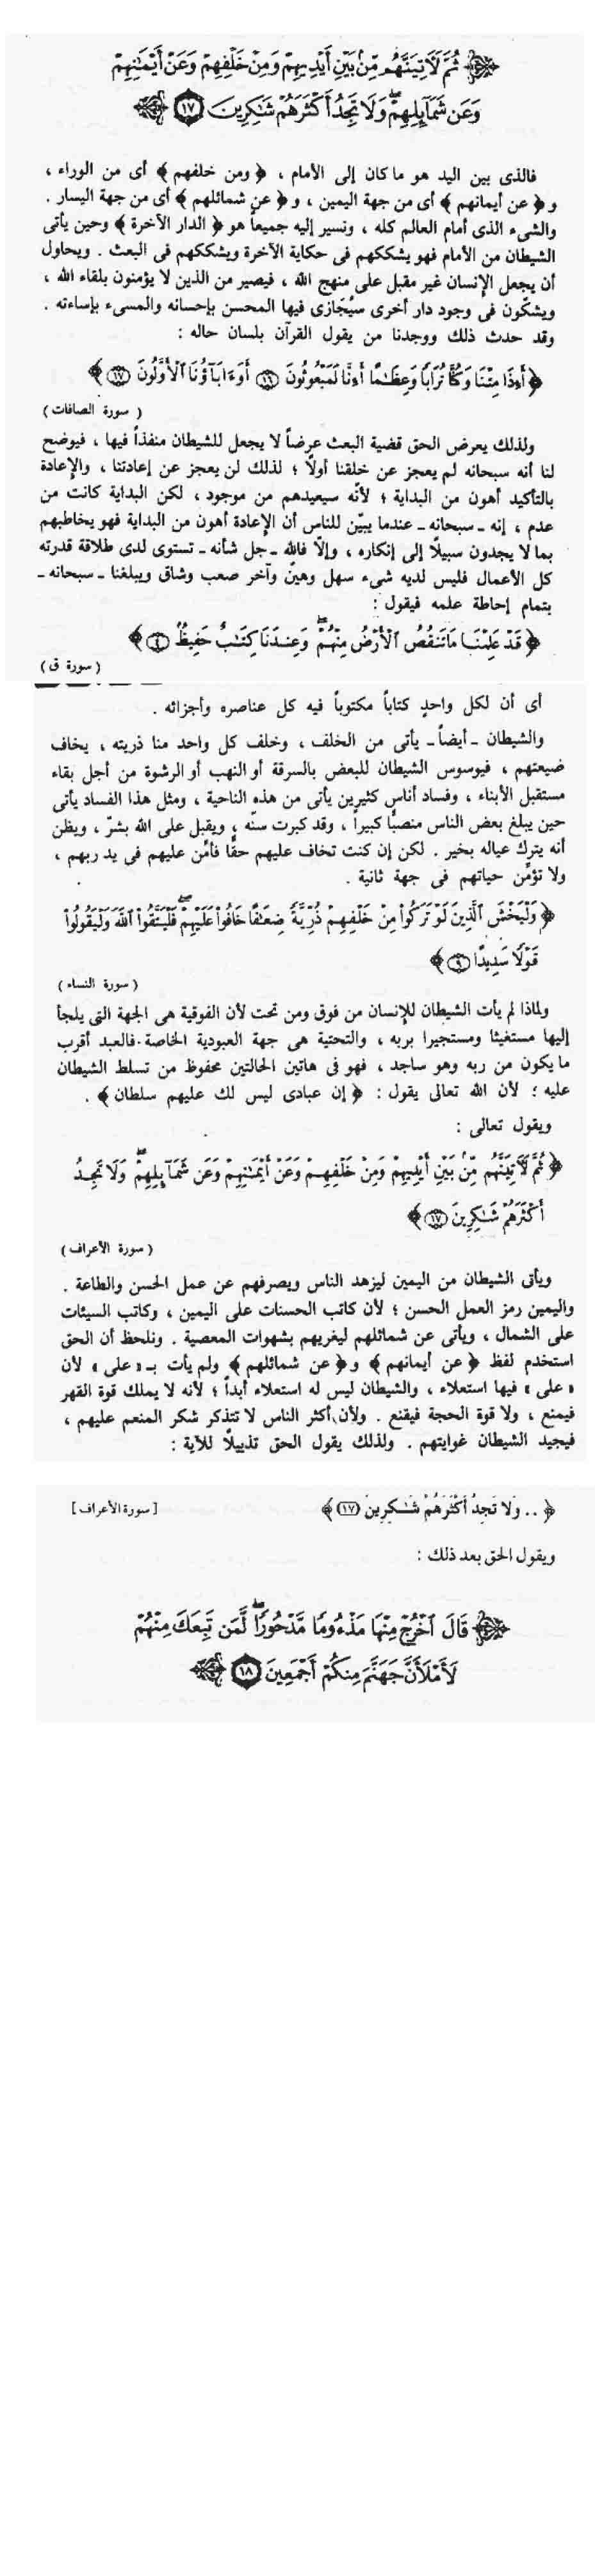 ثُمَّ لَآتِيَنَّهُم مِّنۢ بَيْنِ أَيْدِيهِمْ وَمِنْ خَلْفِهِمْ وَعَنْ أَيْمَٰنِهِمْ
وَعَن شَمَآئِلِهِمْ ۖ وَلَا تَجِدُ أَكْثَرَهُمْ شَٰكِرِينَ ١٧
فالذى بين اليد هو ما كان إلى الأمام ، ﴿ ومن خلفهم ﴾ أى من الوراء ،
و﴿ عن أيمانهم ﴾ أى من جهة اليمين ، و﴿ عن شمائلهم ﴾ أى من جهة اليسار .
والشىء الذى أمام العالم كله ، ونسير إليه جميعاً هو ﴿ الدار الآخرة ﴾ وحين يأتى
الشيطان من الأمام فهو يشككهم فى حكاية الآخرة ويشككهم فى البعث . ويحاول
أن يجعل الإنسان غير مقبل على منهج الله ، فيصير من الذين لا يؤمنون بلقاء الله ،
ويشكّون فى وجود دار أخرى سيُجَازى فيها المحسن بإحسانه والمسىء بإساءته .
وقد حدث ذلك ووجدنا من يقول القرآن بلسان حاله :
﴿ أَءِذَا مِتْنَا وَكُنَّا تُرَابًا وَعِظَٰمًا أَءِنَّا لَمَبْعُوثُونَ ١٦ أَوَءَابَآؤُنَا ٱلْأَوَّلُونَ ١٧ ﴾
( سورة الصافات )
ولذلك يعرض الحق قضية البعث عرضاً لا يجعل للشيطان منفذاً فيها ، فيوضح
لنا أنه سبحانه لم يعجز عن خلقنا أولًا ؛ لذلك لن يعجز عن إعادتنا ، والإعادة
بالتأكيد أهون من البداية ؛ لأنّه سيعيدهم من موجود ، لكن البداية كانت من
عدم ، إنه ـ سبحانه ـ عندما يبيّن للناس أن الإعادة أهون من البداية فهو يخاطبهم
بما لا يجدون سبيلًا إلى إنكاره ، وإلّا فالله ـ جل شأنه ـ تستوى لدى طلاقة قدرته
كل الأعمال فليس لديه شىء سهل وهيّن وآخر صعب وشاق ويبلغنا ـ سبحانه ـ
بتمام إحاطة علمه فيقول :
﴿ قَدْ عَلِمْنَا مَا تَنقُصُ ٱلْأَرْضُ مِنْهُمْ ۖ وَعِندَنَا كِتَٰبٌ حَفِيظٌۢ ٤ ﴾
( سورة ق )
أى أن لكل واحدٍ كتاباً مكتوباً فيه كل عناصره وأجزائه .
والشيطان ـ أيضاً ـ يأتى من الخلف ، وخلف كل واحد منا ذريته ، يخاف
ضيعتهم ، فيوسوس الشيطان للبعض بالسرقة أو النهب أو الرشوة من أجل بقاء
مستقبل الأبناء ، وفساد أناس كثيرين يأتى من هذه الناحية ، ومثل هذا الفساد يأتى
حين يبلغ بعض الناس منصبًا كبيراً ، وقد كبرت سنّه ، ويقبل على الله بشرّ ، ويظن
أنه يترك عياله بخير . لكن إن كنت تخاف عليهم حقًّا فأمِّن عليهم فى يد ربهم ،
ولا تؤمِّن حياتهم فى جهة ثانية .
﴿ وَلْيَخْشَ ٱلَّذِينَ لَوْ تَرَكُوا۟ مِنْ خَلْفِهِمْ ذُرِّيَّةً ضِعَٰفًا خَافُوا۟ عَلَيْهِمْ ۖ فَلْيَتَّقُوا۟ ٱللَّهَ وَلْيَقُولُوا۟
قَوْلًا سَدِيدًا ٩ ﴾
( سورة النساء )
ولماذا لم يأت الشيطان للإنسان من فوق ومن تحت لأن الفوقية هى الجهة التى يلجأ
إليها مستغيثا ومستجيرا بربه ، والتحتية هى جهة العبودية الخاصة . فالعبد أقرب
ما يكون من ربه وهو ساجد ، فهو فى هاتين الحالتين محفوظ من تسلط الشيطان
عليه ؛ لأن الله تعالى يقول : ﴿ إن عبادى ليس لك عليهم سلطان ﴾ .
ويقول تعالى :
﴿ ثُمَّ لَآتِيَنَّهُم مِّنۢ بَيْنِ أَيْدِيهِمْ وَمِنْ خَلْفِهِمْ وَعَنْ أَيْمَٰنِهِمْ وَعَن شَمَآئِلِهِمْ ۖ وَلَا تَجِدُ
أَكْثَرَهُمْ شَٰكِرِينَ ١٧ ﴾
( سورة الأعراف )
ويأتى الشيطان من اليمين ليزهد الناس ويصرفهم عن عمل الحسن والطاعة .
واليمين رمز العمل الحسن ؛ لأن كاتب الحسنات على اليمين ، وكاتب السيئات
على الشمال ، ويأتى عن شمائلهم ليغريهم بشهوات المعصية . ونلحظ أن الحق
استخدم لفظ ﴿ عن أيمانهم ﴾ و﴿ عن شمائلهم ﴾ ولم يأت بـ « على » لأن
« على » فيها استعلاء ، والشيطان ليس له استعلاء أبداً ؛ لأنه لا يملك قوة القهر
فيمنع ، ولا قوة الحجة فيقنع . ولأن أكثر الناس لا تتذكر شكر المنعم عليهم ،
فيجيد الشيطان غوايتهم . ولذلك يقول الحق تذييلًا للآية :
﴿ .. وَلَا تَجِدُ أَكْثَرَهُمْ شَٰكِرِينَ ١٧ ﴾ [ سورة الأعراف ]
ويقول الحق بعد ذلك :
قَالَ ٱخْرُجْ مِنْهَا مَذْءُومًا مَّدْحُورًا ۖ لَّمَن تَبِعَكَ مِنْهُمْ
لَأَمْلَأَنَّ جَهَنَّمَ مِنكُمْ أَجْمَعِينَ ١٨